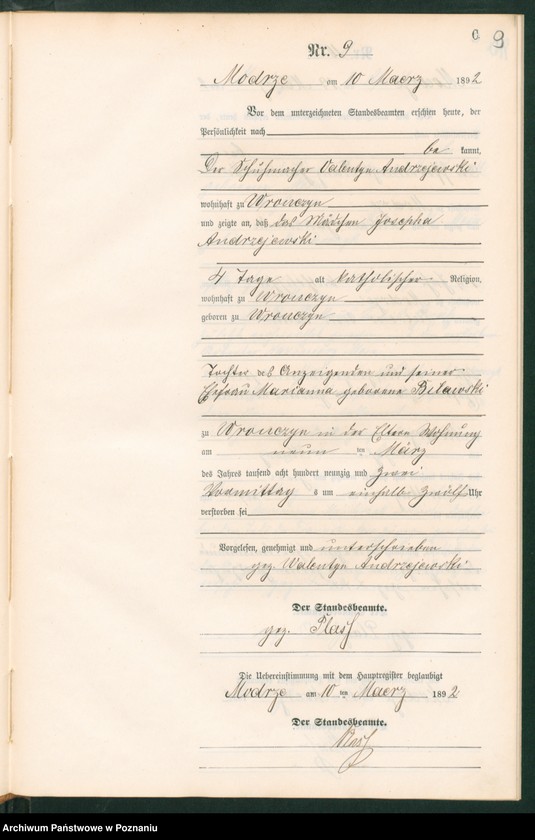 9
Nr. 9
Modrze am 10 Maerz 1892
Vor dem unterzeichneten Standesbeamten erschien heute, der
Persönlichkeit nach
be kannt,
Der Schuhmacher Valentyn Andrzejewski
wohnhaft zu Wronczyn
und zeigte an, daß das Mädchen Josepha
Andrzejewski
4 Tage alt katholischer Religion,
wohnhaft zu Wronczyn
geboren zu Wronczyn
Tochter des Anzeigenden und seiner
Ehefrau Marianna geborene Bilawski
zu Wronczyn in der Eltern Wohnung
am neun ten März
des Jahres tausend acht hundert neunzig und zwei
Vormittag s um einhalb zwölf Uhr
verstorben sei
Vorgelesen, genehmigt und unterschrieben
gez. Walentyn Andrzejewski
Der Standesbeamte.
gez.
Die Uebereinstimmung mit dem Hauptregister beglaubigt
Modrze am 10 ten Maerz 1892
Der Standesbeamte.
Archiwum Państwowe w Poznaniu